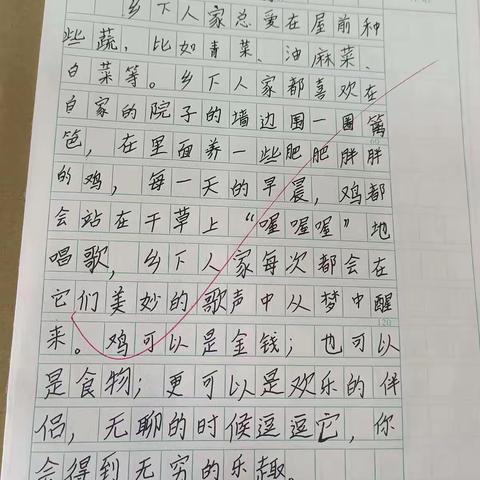 乡下人家总爱在屋前种
些蔬，比如青菜、油麻菜、
白菜等。乡下人家都喜欢在
自家的院子的墙边围一圈篱
笆，在里面养一些肥肥胖胖
的鸡，每一天的早晨，鸡都
会站在干草上“喔喔喔”地
唱歌，乡下人家每次都会在
它们美妙的歌声中从梦中醒
来。鸡可以是金钱；也可以
是食物；更可以是欢乐的伴
侣，无聊的时候逗逗它，你
会得到无穷的乐趣。
120